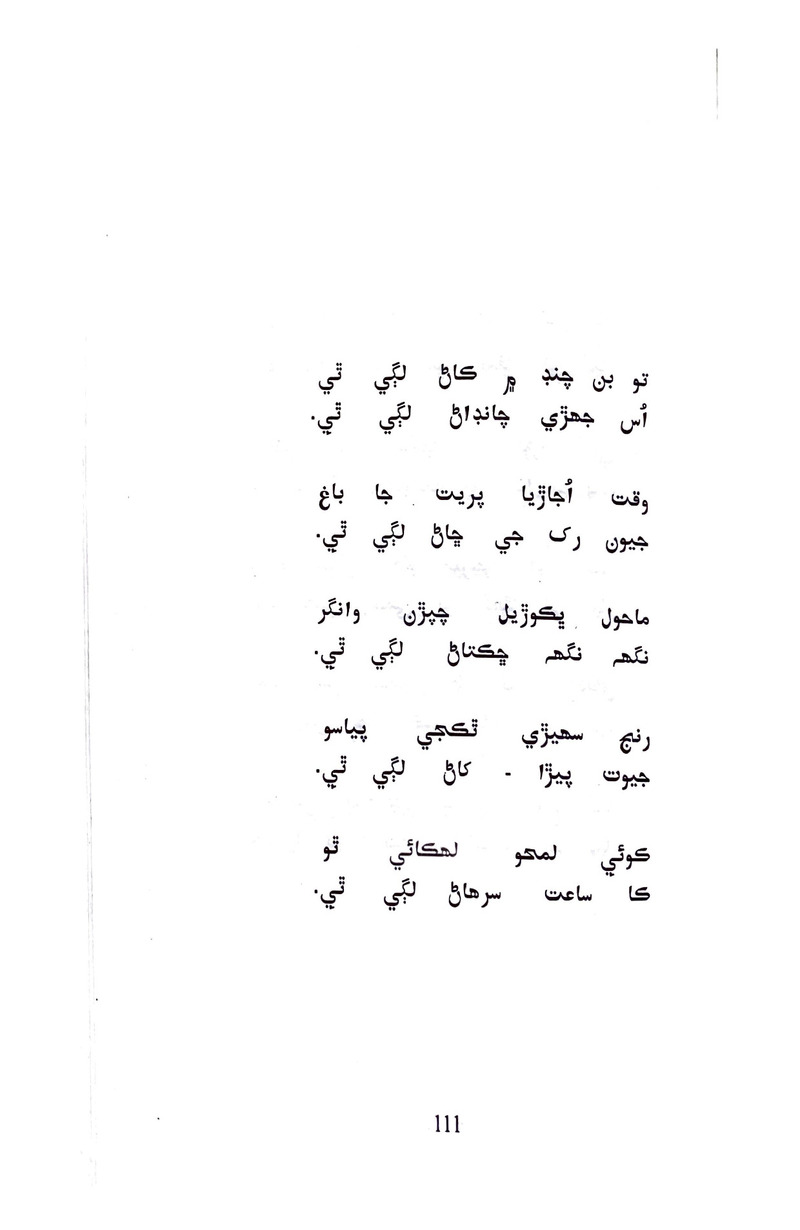 تو بن چنڊ ۾ ڪاڻ لڳي ٿي
اُس جهڙي چانڊاڻ لڳي ٿي.
وقت اُجاڙيا پريت جا باغ
جيون رک جي ڇاڻ لڳي ٿي.
ماحول ڀڪوڙيل چپڙن وانگر
نگهہ نگهہ ڇڪتاڻ لڳي ٿي.
رنج سهيڙي ٿڪجي پياسو
جيوت پيڙا - کاڻ لڳي ٿي.
ڪوئي لمحو لهڪائي ٿو
ڪا ساعت سرهاڻ لڳي ٿي.
111